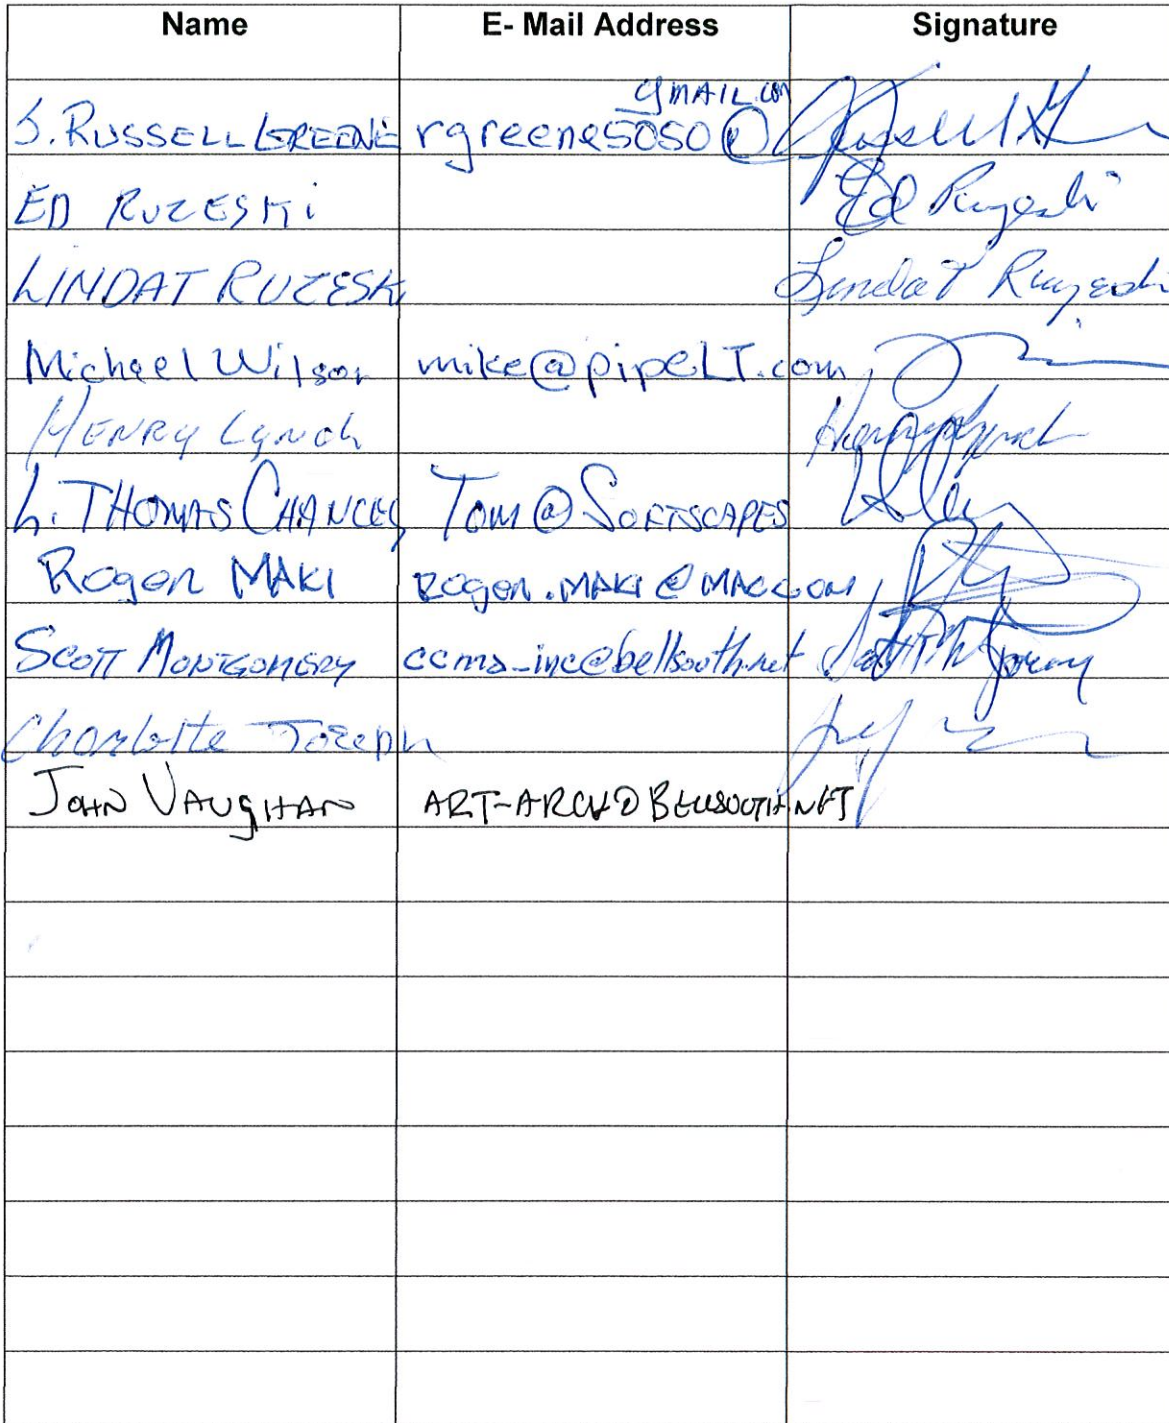 Name E- Mail Address Signature
gmail.com
S. RUSSELL GREENE rgreene5050@
ED RUZESKi Ed Ruzeski
LINDA T RUZESKi Linda T Ruzeski
Michael Wilson mike@pipeLT.com
HENRY Lynch Henry Lynch
L. THOMAS CHANCEY Tom @ SOFTSCAPES
Roger MAKI Roger.MAKI@MAC.COM
SCOTT MONTGOMERY ccma_inc@bellsouth.net
Charlotte Joseph
JOHN VAUGHAN ART-ARCH@BELLSOUTH.NET